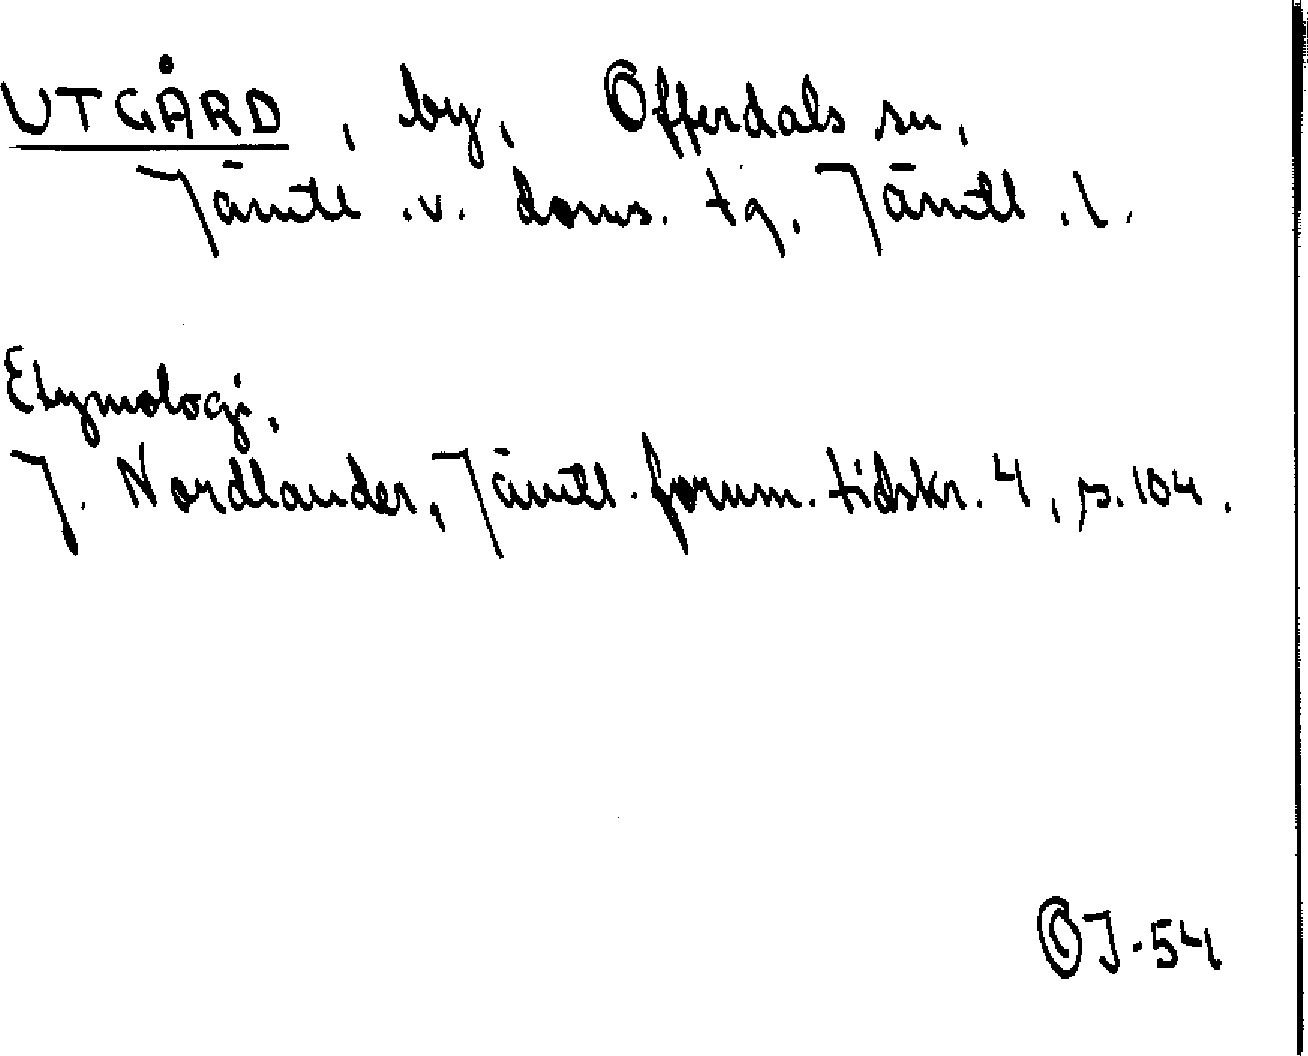 UTGÅRD, by, Offerdals sn,
Jämtl.v. doms. tg. Jämtl.l.
Etymologi.
J. Nordlander, Jämtl. fornm. tidskr. 4, s. 104.
OJ-54